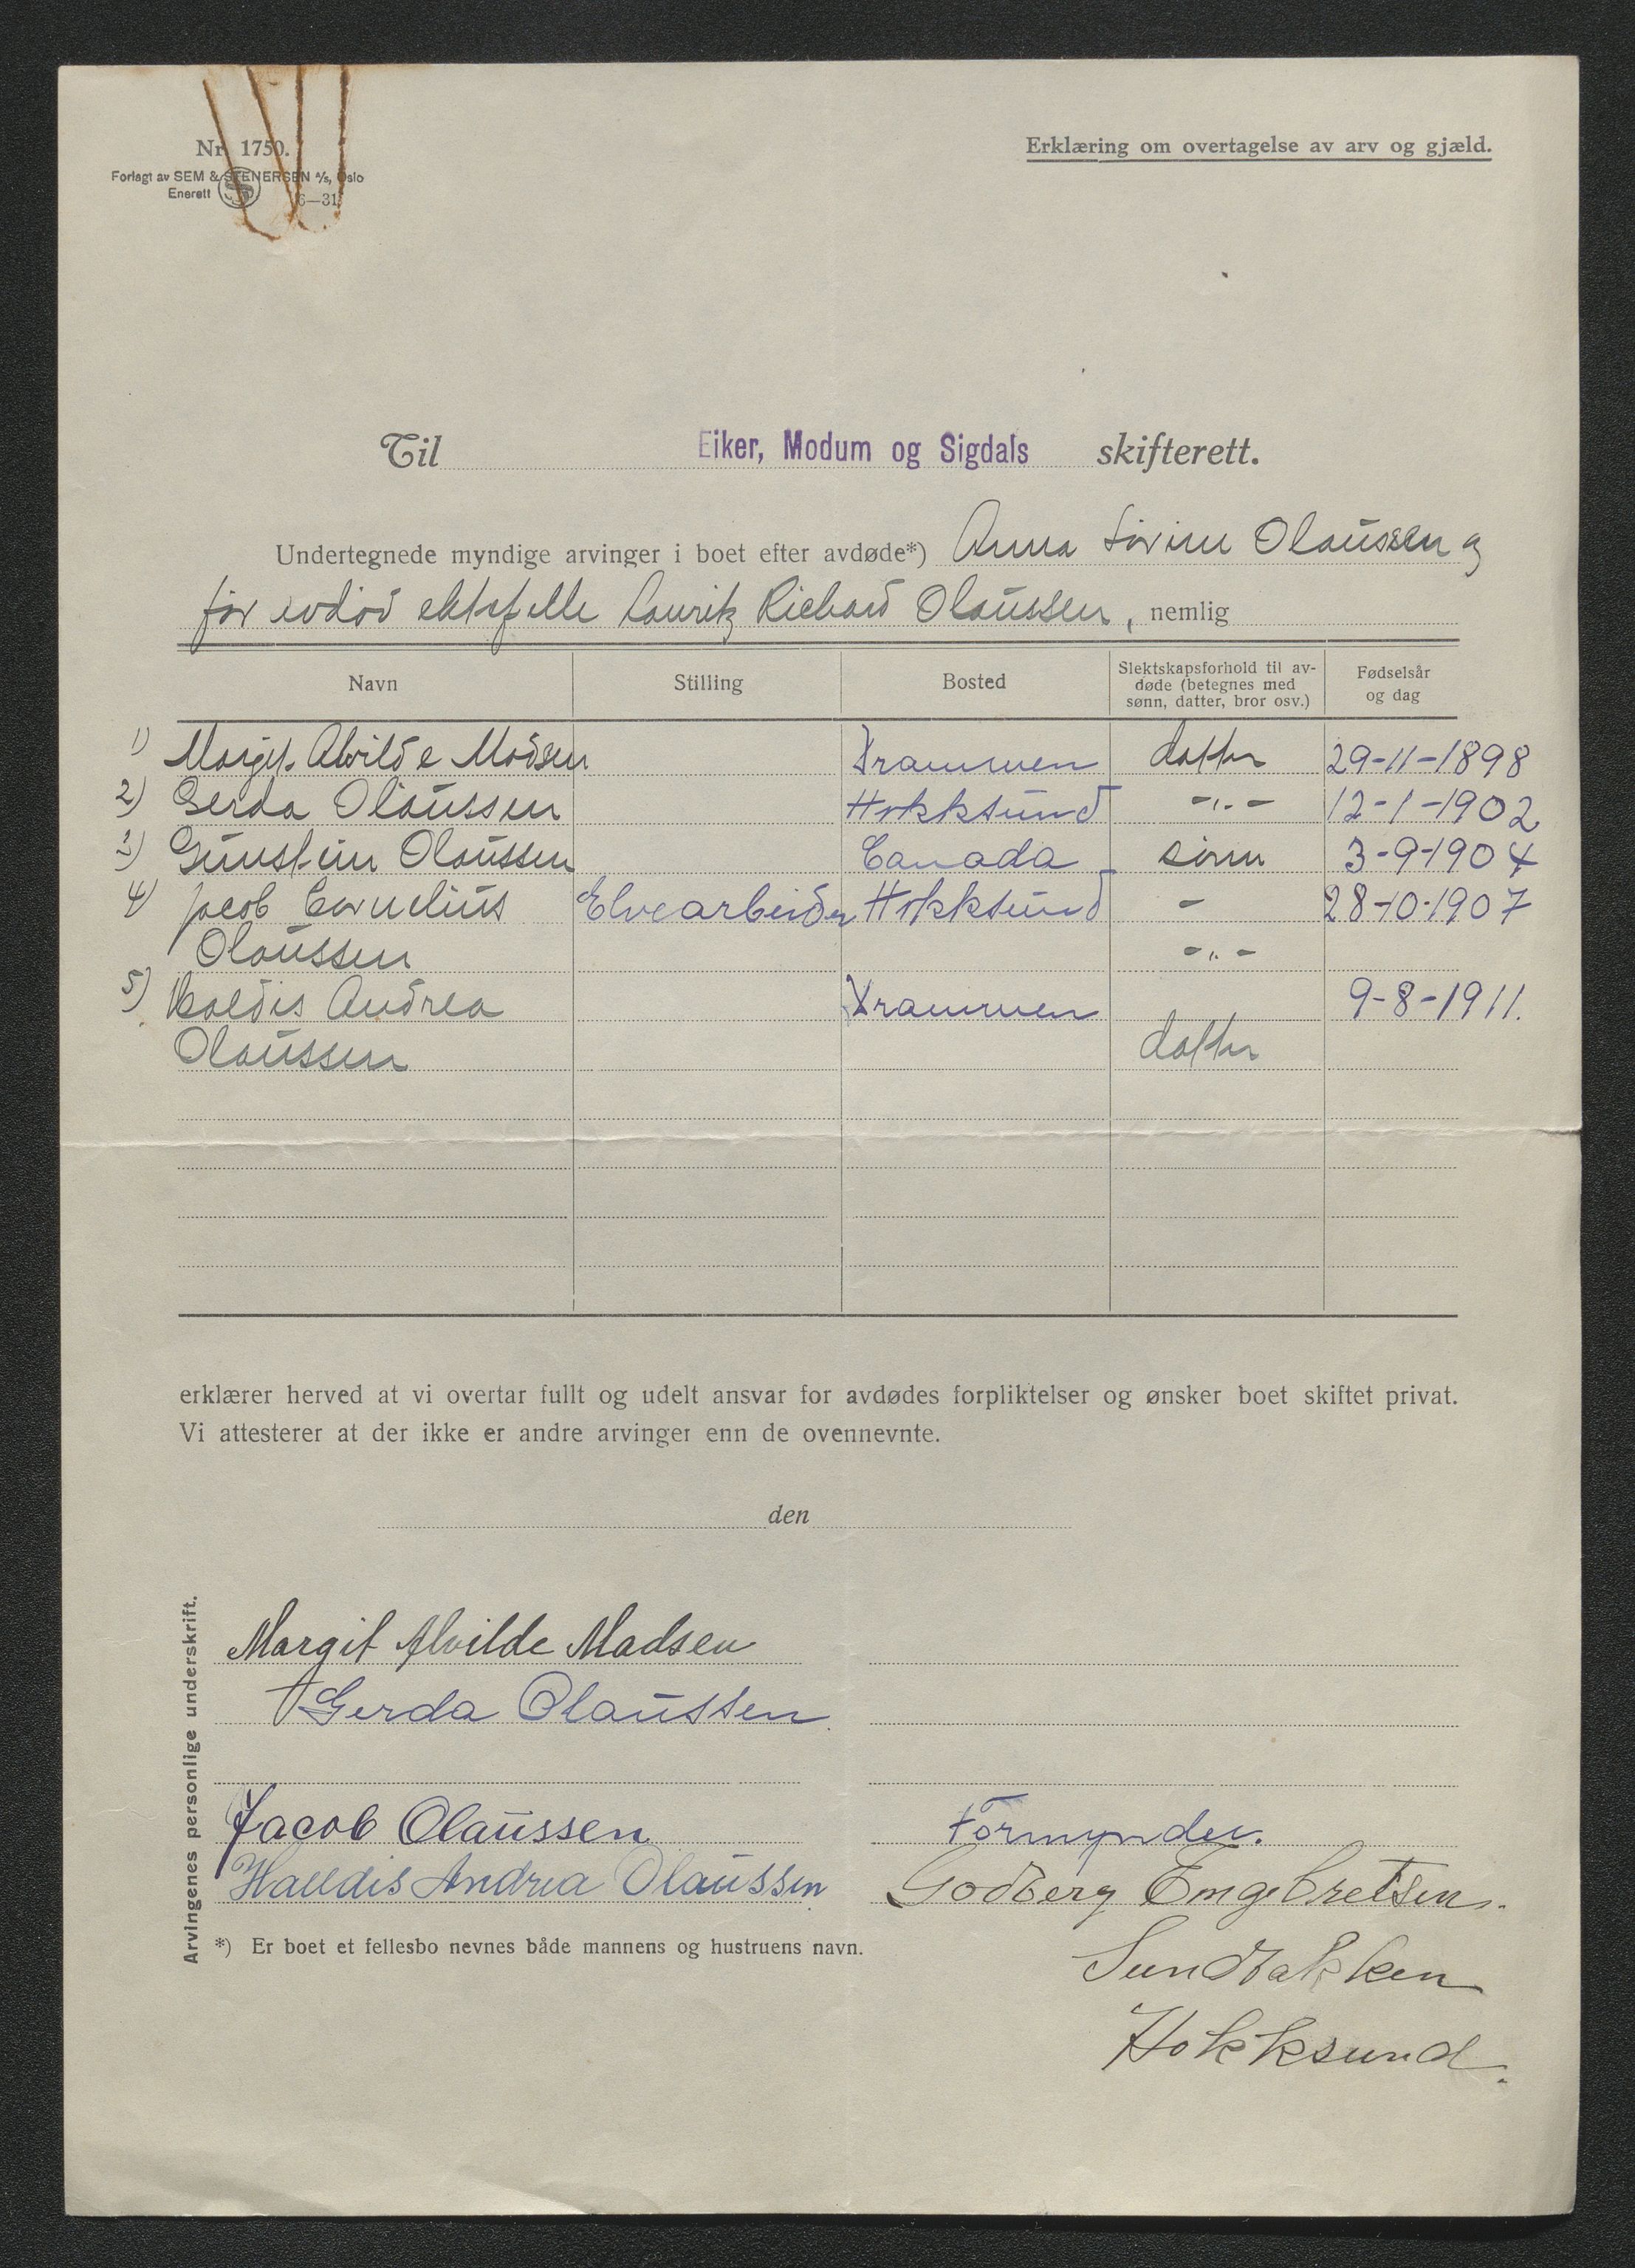 Nr. 1750.
Forlagt av SEM & STENERSEN A/s, Oslo
Enerett 6—31
Erklæring om overtagelse av arv og gjæld.
Til Eiker, Modum og Sigdals skifterett.
Undertegnede myndige arvinger i boet efter avdøde*) Anna Lovine Olaussen og
før avdød ektefelle Lauritz Richard Olaussen, nemlig
Navn Stilling Bosted Slektskapsforhold til av-
døde (betegnes med
sønn, datter, bror osv.) Fødselsår
og dag
1) Margit Alvilde Madsen Drammen datter 29-11-1898
2) Gerda Olaussen Hokksund -"- 12-1-1902
3) Gunstein Olaussen Canada sønn 3-9-1904
4) Jacob Cornelius Elvearbeider Hokksund - 28-10-1907
Olaussen -"-
5) Haldis Andrea Drammen 9-8-1911.
Olaussen datter
erklærer herved at vi overtar fullt og udelt ansvar for avdødes forpliktelser og ønsker boet skiftet privat.
Vi attesterer at der ikke er andre arvinger enn de ovennevnte.
den
Arvingenes personlige underskrift.
Margit Alvilde Madsen
Gerda Olaussen.
Jacob Olaussen Formynder.
Halldis Andrea Olaussen Godberg Engebretsen.
Sundbakken
Hokksund.
*) Er boet et fellesbo nevnes både mannens og hustruens navn.